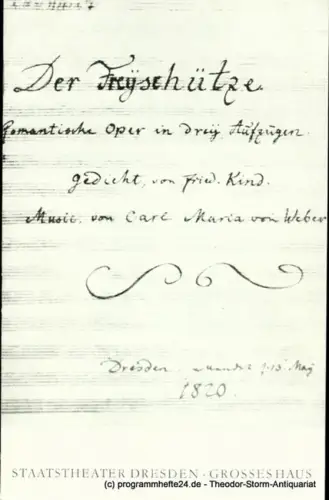 Der Freyschütze.
Romantische Oper in dreÿ Aufzügen.
Gedicht, von Fried. Kind.
Music. von Carl Maria von Weber
Dresden. May
1820.
STAATSTHEATER DRESDEN · GROSSES HAUS
(c) programmhefte24.de - Theodor-Storm-Antiquariat